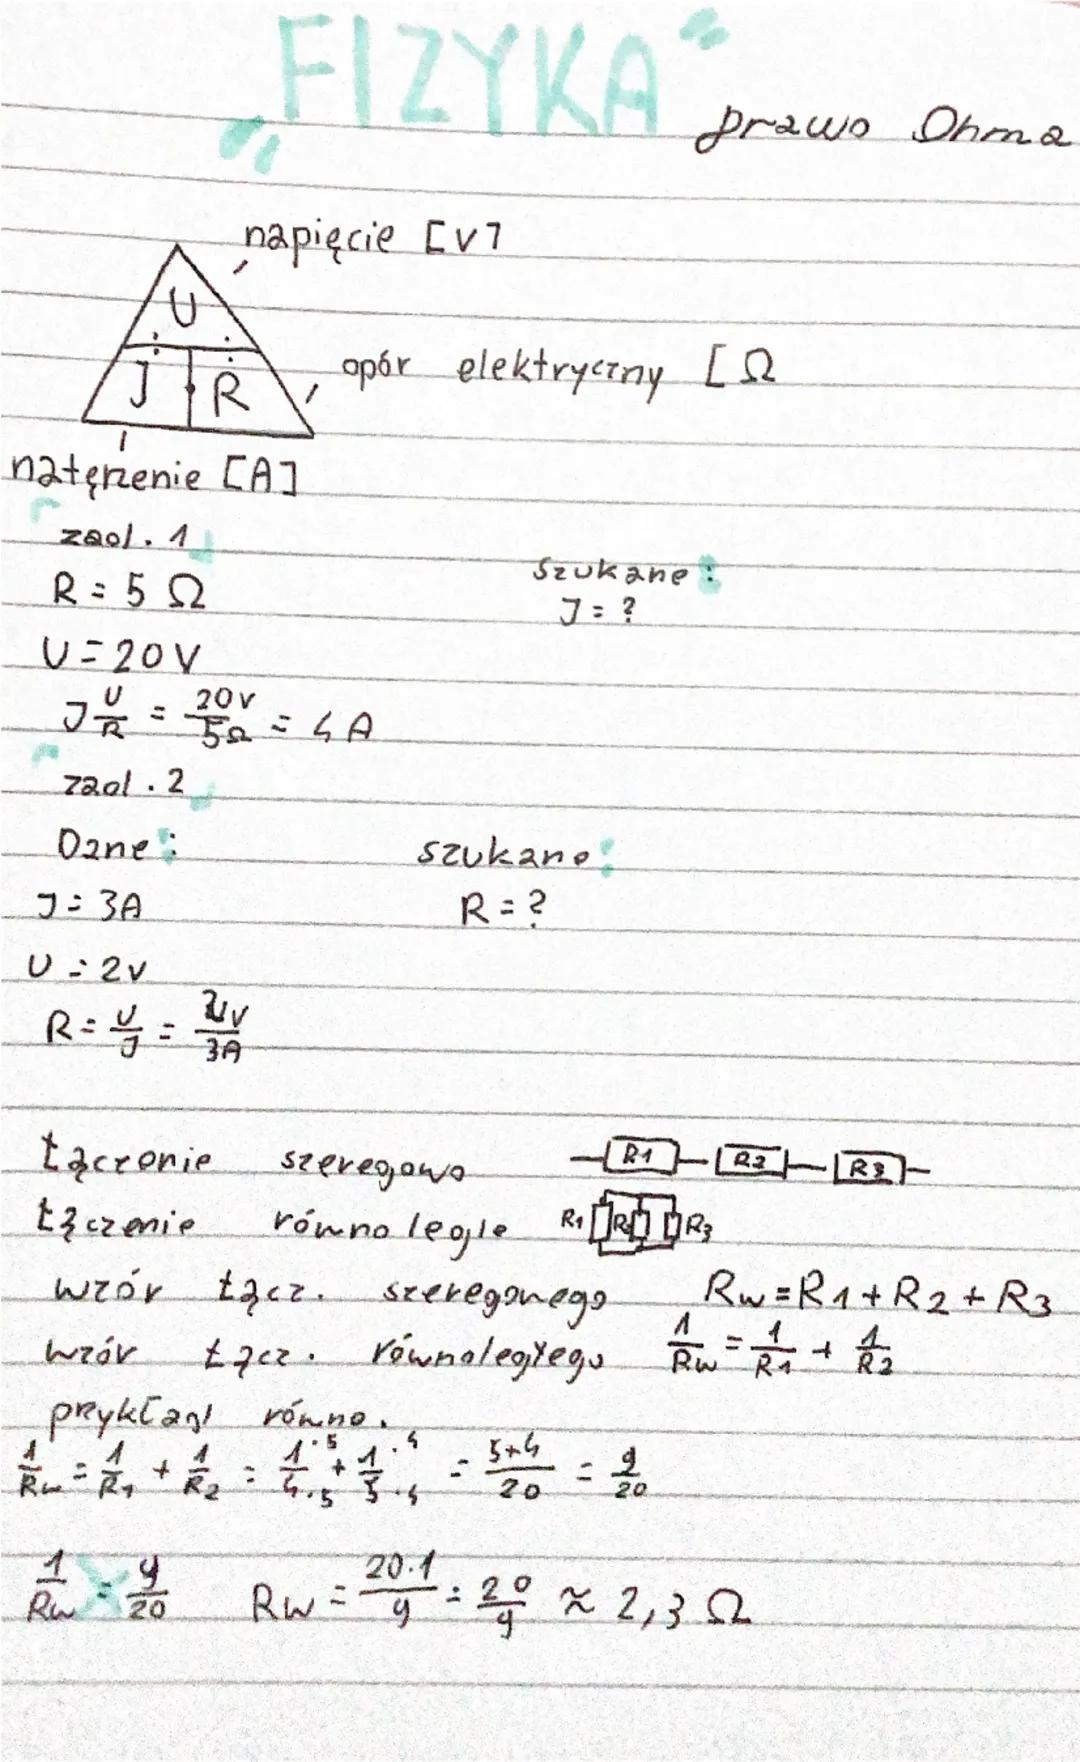 FIZYKA
prawo Ohma
napięcie [V]
U
J R
opór elektryczny [Ω
natężenie [A]
zad. 1
R = 5 Ω
szukane:
J = ?
U = 20 V
J U/R = 20V/5Ω = 4 A
zad. 2
Dane: szukane:
J = 3A R = ?
U = 2V
R = U/J = 2V/3A
Łączenie szeregowo R1 R2 R3
Łączenie równolegle R1 R R3
wzór łącz. szeregonego Rw = R1 + R2 + R3
wzór łącz. równoległego 1/Rw = 1/R1 + 1/R2
przykład równo.
1/Rw = 1/R1 + 1/R2 = 1·5/4·5 + 1·4/5·4 = 5+4/20 = 9/20
1/Rw = 9/20 Rw = 20·1/9 = 20/9 ≈ 2,3 Ω